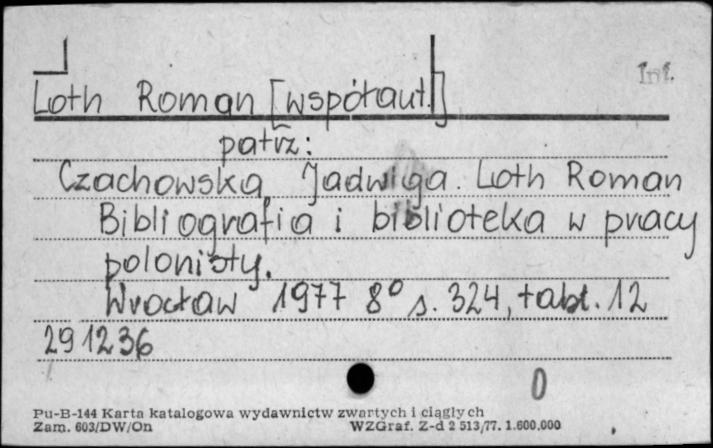 Inf.
Loth Roman [współaut.]
patrz:
Czachowska Jadwiga. Loth Roman
Bibliografia i biblioteka w pracy
polonisty.
Wrocław 1977 8° s. 324, tabl. 12
291236
0
Pu-B-144 Karta katalogowa wydawnictw zwartych i ciągłych
Zam. 603/DW/On WZGraf. Z-d 2 513/77. 1.600.000